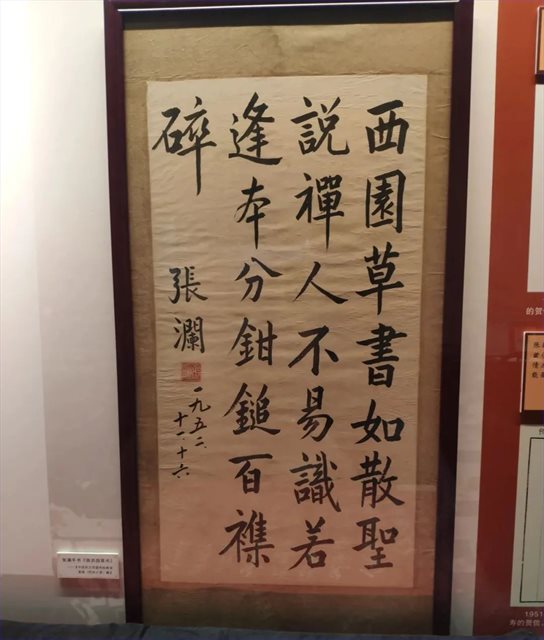 西園草書如散聖
説禪人不易識若
逢本分鉗鎚百襍
碎
張瀾
一九五二、
十一、十六
的贺
1951
寿的贺信、